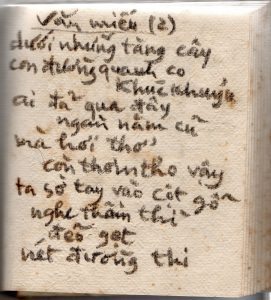 văn miếu (2)
dưới những tầng cây
con đường quanh co
khúc khuỷu
ai đã qua đây
ngàn năm cũ
mà hơi thơ
còn thơm tho vậy
ta sờ tay vào cột gỗ
nghe thầm thì
đẽo gọt
nét đường thi